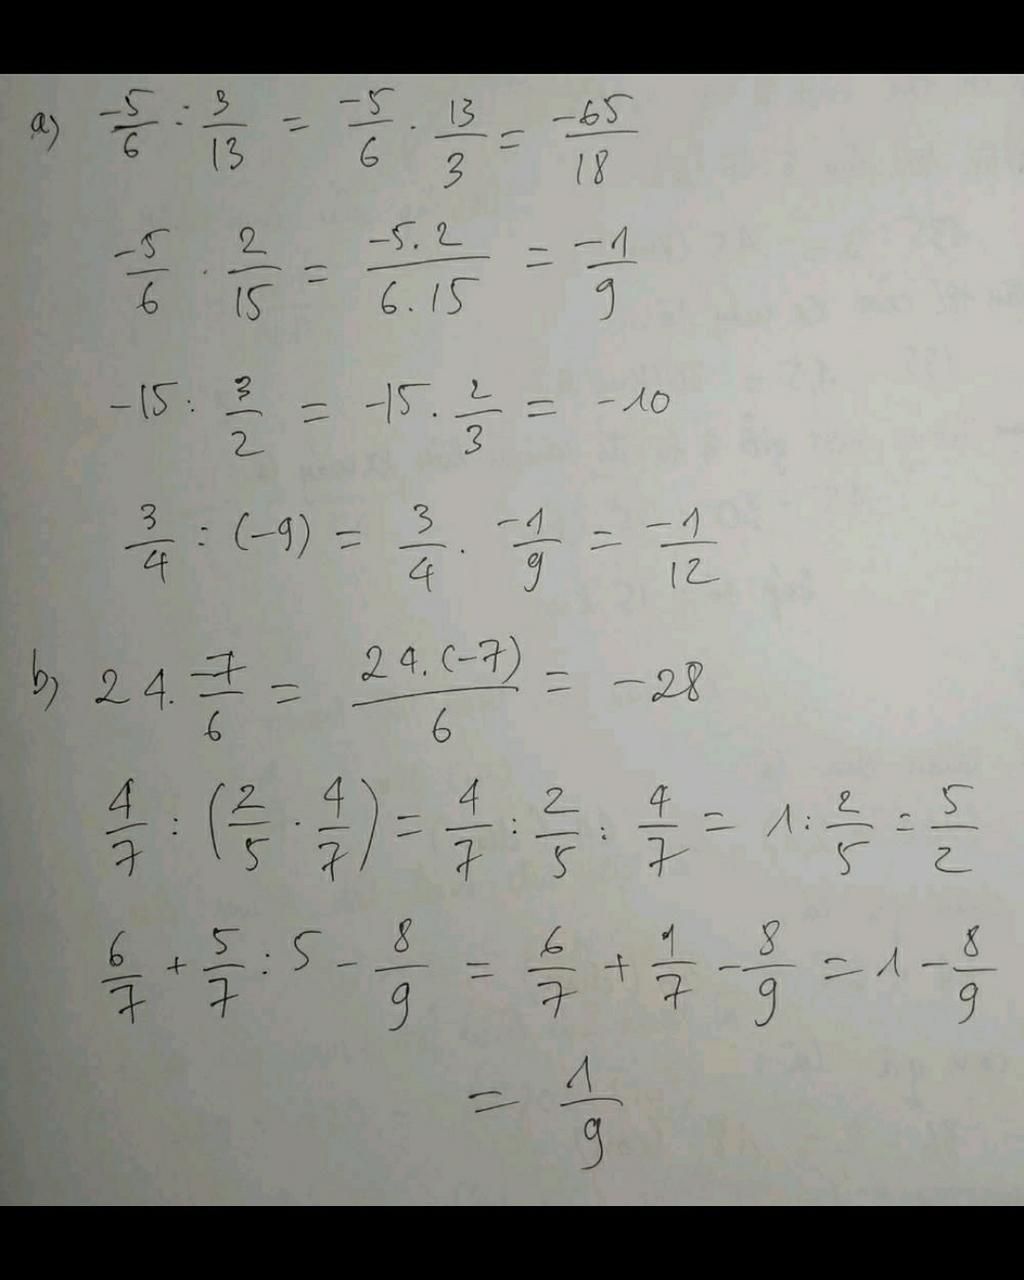 a) -5/6 : 3/13 = -5/6 . 13/3 = -65/18
-5/6 . 2/15 = -5.2/6.15 = -1/9
-15 : 3/2 = -15 . 2/3 = -10
3/4 : (-9) = 3/4 . -1/9 = -1/12
b) 24. -7/6 = 24.(-7)/6 = -28
4/7 : (2/5 . 4/7) = 4/7 : 2/5 : 4/7 = 1 : 2/5 = 5/2
6/7 + 5/7 : 5 - 8/9 = 6/7 + 1/7 - 8/9 = 1 - 8/9
= 1/9